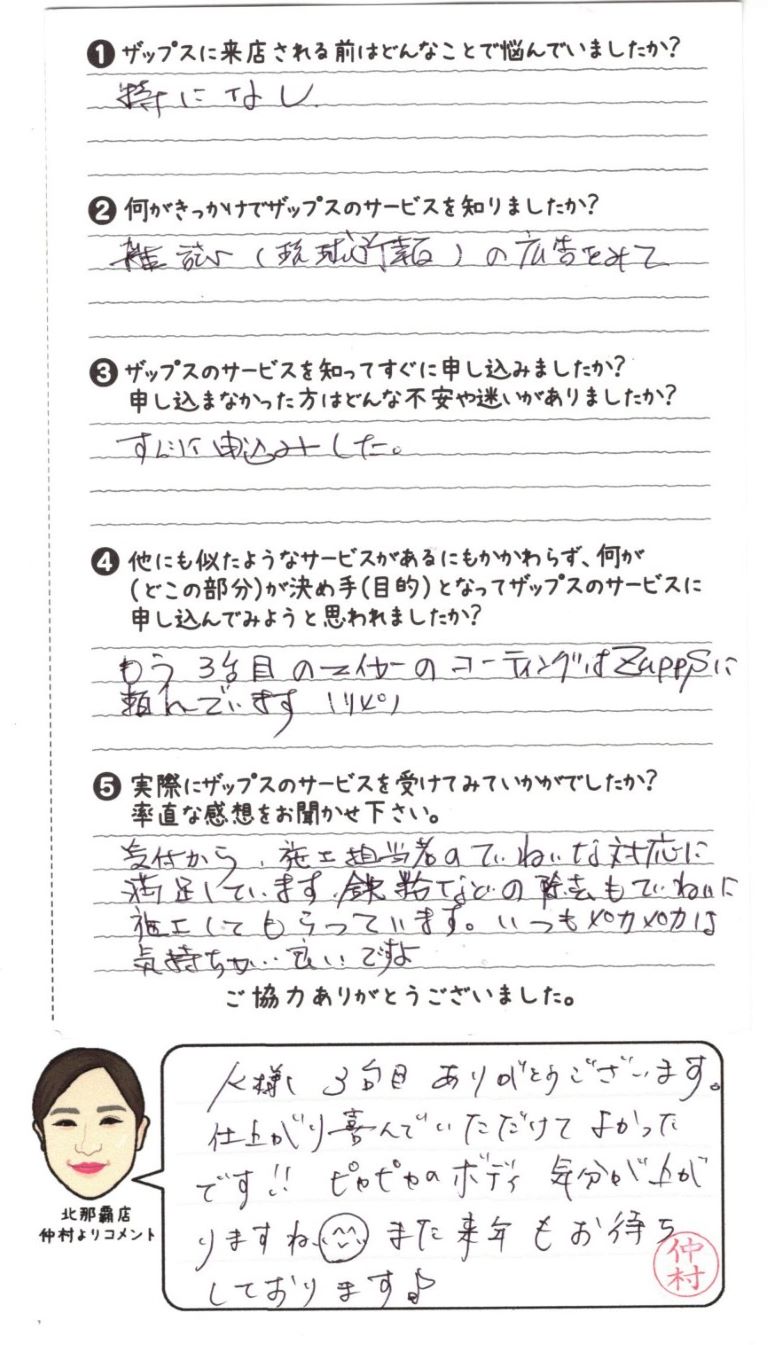 ❶ ザップスに来店される前はどんなことで悩んでいましたか?
特になし
❷ 何がきっかけでザップスのサービスを知りましたか?
雑誌(琉球新報)の広告をみて
❸ ザップスのサービスを知ってすぐに申し込みましたか?
申し込まなかった方はどんな不安や迷いがありましたか?
すぐに申込みした。
❹ 他にも似たようなサービスがあるにもかかわらず、何が
(どこの部分)が決め手(目的)となってザップスのサービスに
申し込んでみようと思われましたか?
もう3台目のマイカーのコーティングはZappSに
頼んでいます
❺ 実際にザップスのサービスを受けてみていかがでしたか?
率直な感想をお聞かせ下さい。
受付から、施工担当者のていねいな対応に
満足しています。鉄粉などの除去もていねいに
施工してもらっています。いつもメカメカは
気持ちが…良いですよ
ご協力ありがとうございました。
K様 3台目ありがとうございます。
仕上がり喜んでいただけてよかった
です!! ピカピカのボディ 気分が上が
りますね また来年もお待ち
しております♪
仲村
北那覇店
仲村よりコメント